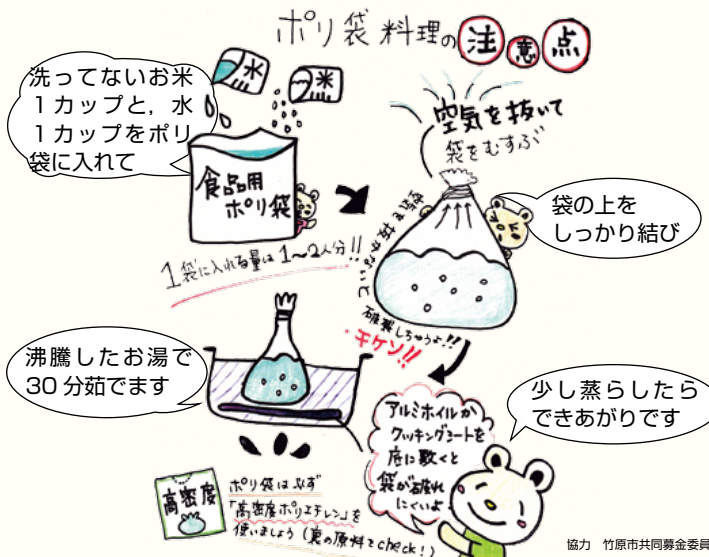 ポリ袋料理の注意点
洗ってないお米
1カップと，水
1カップをポリ
袋に入れて
水
米
食品用
ポリ袋
1袋に入れる量は1〜2人分!!
空気を抜いて
袋をむすぶ
袋の上を
しっかり結び
空気を抜かないと
破裂しちゃうよ!!
キケン!!
沸騰したお湯で
30分茹でます
アルミホイルか
クッキングシートを
底に敷くと
袋が破れ
にくいよ
少し蒸らしたら
できあがりです
高密度
ポリ袋は必ず
「高密度ポリエチレン」を
使いましょう（裏の原料をcheck!）
協力　竹原市共同募金委員